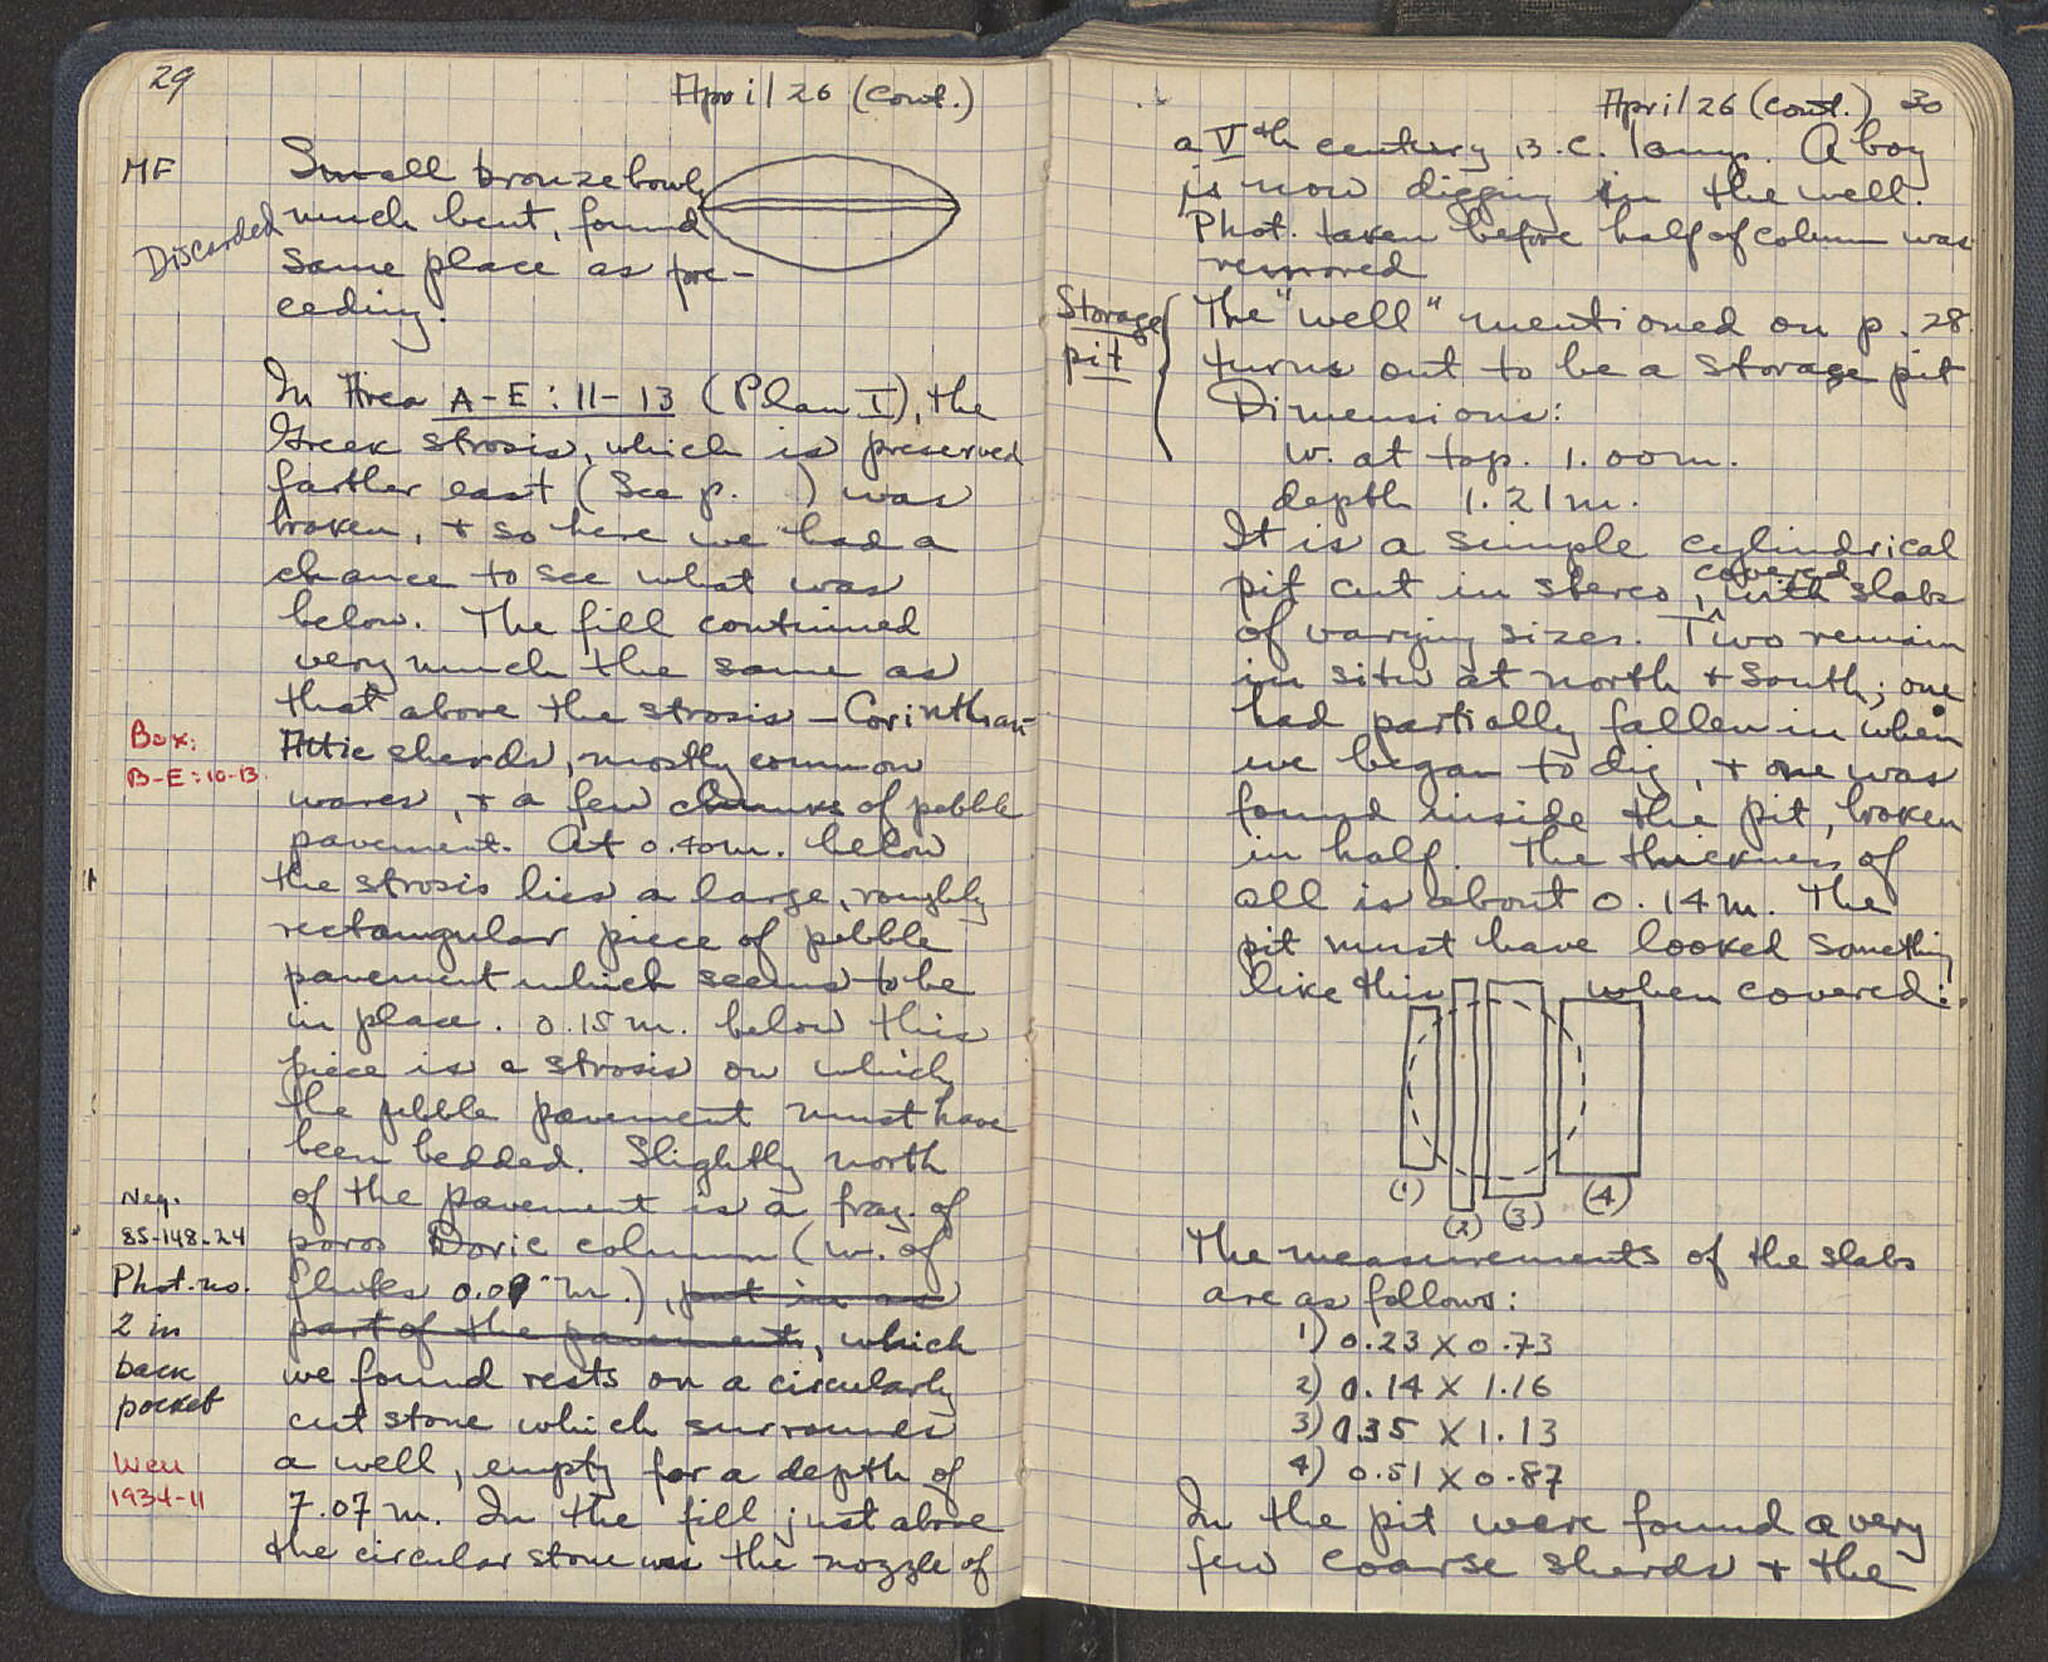 29
April 26 (cont.)
MF
Discarded
Small bronze bowl,
much bent, found
same place as pre-
ceding.
In Area A-E: 11-13 (Plan I), the
Greek strosis, which is preserved
farther east (See p.   ) was
broken, + so here we had a
chance to see what was
below. The fill continued
very much the same as
that above the strosis - Corinthian-
Box:
B-E: 10-13.
Attic sherds, mostly common
wares, + a few chunks of pebble
pavement. At 0.40m. below
the strosis lies a large, roughly
rectangular piece of pebble
pavement which seems to be
in place. 0.15 m. below this
piece is a strosis on which
the pebble pavement must have
been bedded. Slightly north
of the pavement is a frag. of
Neg.
85-148-24
poros Doric column (w. of
Phot. no.
2 in
back
pocket
flutes 0.09 m.), put in as
part of the pavement, which
we found rests on a circularly
cut stone which surrounds
Well
1934-11
a well, empty for a depth of
7.07 m. In the fill just above
the circular stone was the nozzle of
April 26 (cont.) 30
a Vth century B.C. lamp. A boy
is now digging in the well.
Phot. taken before half of column was
removed
Storage
pit
The "well" mentioned on p. 28
turns out to be a storage pit
Dimensions:
w. at top. 1.00m.
depth 1.21m.
It is a simple cylindrical
pit cut in stereo, covered with slabs
of varying sizes. Two remain
in situ at north + south; one
had partially fallen in when
we began to dig, + one was
found inside the pit, broken
in half. The thickness of
all is about 0.14m. The
pit must have looked something
like this when covered:
(1)
(2)
(3)
(4)
The measurements of the slabs
are as follows:
1) 0.23 X 0.73
2) 0.14 X 1.16
3) 0.35 X 1.13
4) 0.51 X 0.87
In the pit were found a very
few coarse sherds + the